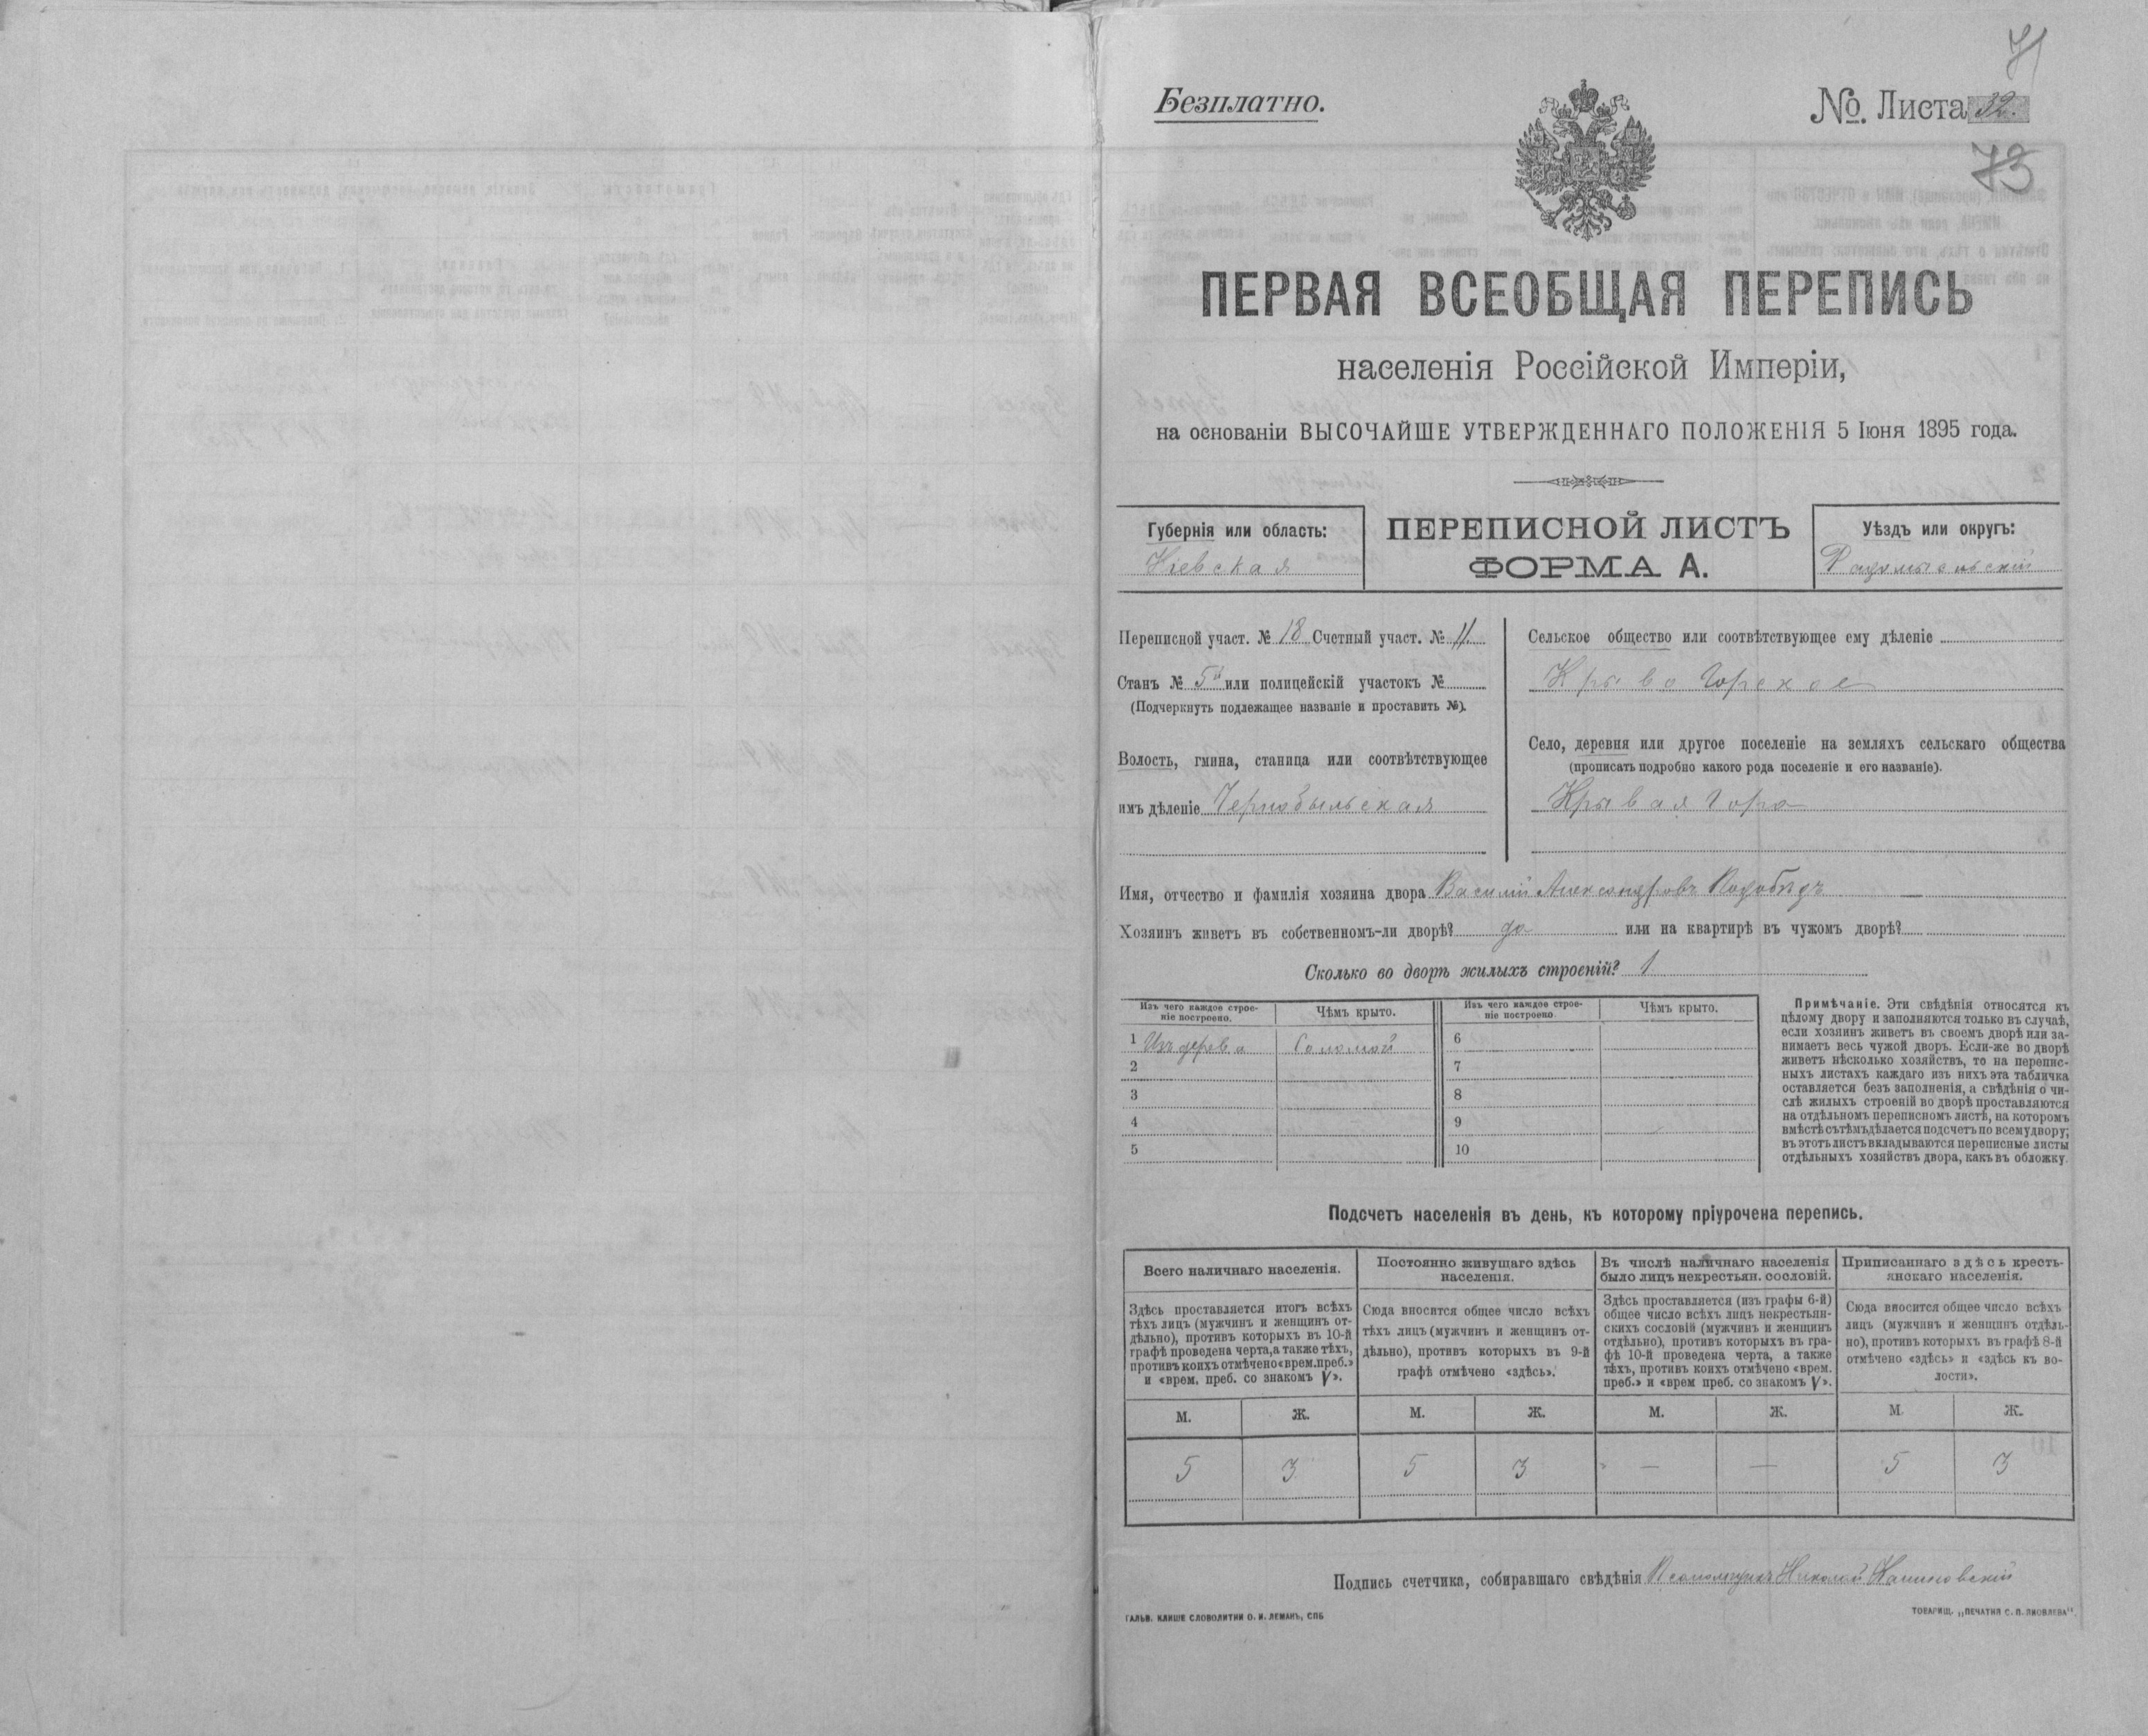 71
Безплатно.
№ Листа 32.
73
ПЕРВАЯ ВСЕОБЩАЯ ПЕРЕПИСЬ
населенія Россійской Имперіи,
на основаніи ВЫСОЧАЙШЕ УТВЕРЖДЕННАГО ПОЛОЖЕНІЯ 5 Іюня 1895 года.
Губернія или область:
Кіевская
ПЕРЕПИСНОЙ ЛИСТЪ
ФОРМА А.
Уѣздъ или округъ:
Радомысльскій
Переписной участ. № 18 Счетный участ. № 11.
Станъ № 5й или полицейскій участокъ №
(Подчеркнуть подлежащее названіе и проставить №).
Волость, гмина, станица или соотвѣтствующее
имъ дѣленіе Чернобыльская
Сельское общество или соотвѣтствующее ему дѣленіе
Крывогорское
Село, деревня или другое поселеніе на земляхъ сельскаго общества
(прописать подробно какого рода поселеніе и его названіе).
Крывая Гора
Имя, отчество и фамилія хозяина двора Василій Александровъ
Хозяинъ живетъ въ собственномъ-ли дворѣ? да или на квартирѣ въ чужомъ дворѣ?
Сколько во дворѣ жилыхъ строеній? 1
Изъ чего каждое строе-
ніе построено.
Чѣмъ крыто.
Изъ чего каждое строе-
ніе построено
Чѣмъ крыто.
1 Изъ дерева Соломой 6
2 7
3 8
4 9
5 10
Примѣчаніе. Эти свѣдѣнія относятся къ
цѣлому двору и заполняются только въ случаѣ,
если хозяинъ живетъ въ своемъ дворѣ или за-
нимаетъ весь чужой дворъ. Если-же во дворѣ
живетъ нѣсколько хозяйствъ, то на перепис-
ныхъ листахъ каждаго изъ нихъ эта табличка
оставляется безъ заполненія, а свѣдѣнія о чи-
слѣ жилыхъ строеній во дворѣ проставляются
на отдѣльномъ переписномъ листѣ, на которомъ
вмѣстѣ съ тѣмъ дѣлается подсчетъ по всему двору;
въ этотъ листъ вкладываются переписные листы
отдѣльныхъ хозяйствъ двора, какъ въ обложку.
Подсчетъ населенія въ день, къ которому пріурочена перепись.
Всего наличнаго населенія.
Здѣсь проставляется итогъ всѣхъ
тѣхъ лицъ (мужчинъ и женщинъ от-
дѣльно), противъ которыхъ въ 10-й
графѣ проведена черта, а также тѣхъ,
противъ коихъ отмѣчено «врем. преб.»
и «врем. преб. со знакомъ V».
Постоянно живущаго здѣсь
населенія.
Сюда вносится общее число всѣхъ
тѣхъ лицъ (мужчинъ и женщинъ от-
дѣльно), противъ которыхъ въ 9-й
графѣ отмѣчено «здѣсь».
Въ числѣ наличнаго населенія
было лицъ некрестьян. сословій.
Здѣсь проставляется (изъ графы 6-й)
общее число всѣхъ лицъ некрестьян-
скихъ сословій (мужчинъ и женщинъ
отдѣльно), противъ которыхъ въ гра-
фѣ 10-й проведена черта, а также
тѣхъ, противъ коихъ отмѣчено «врем.
преб.» и «врем преб. со знакомъ V».
Приписаннаго здѣсь кресть-
янскаго населенія.
Сюда вносится общее число всѣхъ
лицъ (мужчинъ и женщинъ отдѣль-
но), противъ которыхъ въ графѣ 8-й
отмѣчено «здѣсь» и «здѣсь къ во-
лости».
М. Ж. М. Ж. М. Ж. М. Ж.
5 3 5 3 — — 5 3
Подпись счетчика, собиравшаго свѣдѣнія Псаломщикъ Николай
ГАЛЬВ. КЛИШЕ СЛОВОЛИТНИ О. И. ЛЕМАНЪ, СПБ
ТОВАРИЩ. „ПЕЧАТНЯ С. П. ЯКОВЛЕВА".